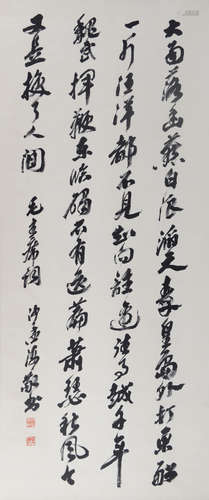 大雨落幽燕白浪滔天秦皇島外打魚船
一片汪洋都不見知向誰邊往事越千年
魏武揮鞭東臨碣石有遺篇蕭瑟秋風今
又是換了人間 毛主席詞 沙孟海敬書